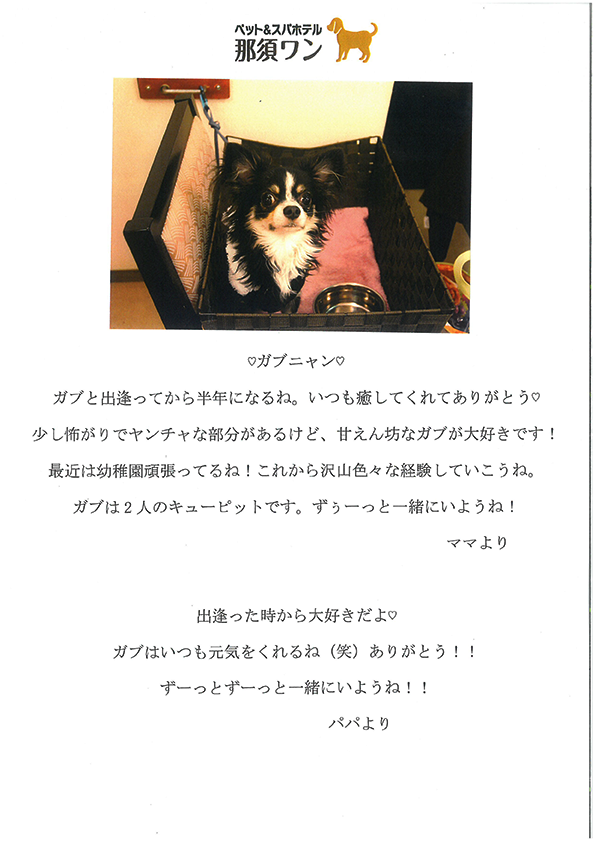 ペット&スパホテル
那須ワン
♡ガブニャン♡
ガブと出逢ってから半年になるね。いつも癒してくれてありがとう♡
少し怖がりでヤンチャな部分があるけど、甘えん坊なガブが大好きです！
最近は幼稚園頑張ってるね！これから沢山色々な経験していこうね。
ガブは２人のキューピットです。ずぅーっと一緒にいようね！
ママより
出逢った時から大好きだよ♡
ガブはいつも元気をくれるね（笑）ありがとう！！
ずーっとずーっと一緒にいようね！！
パパより